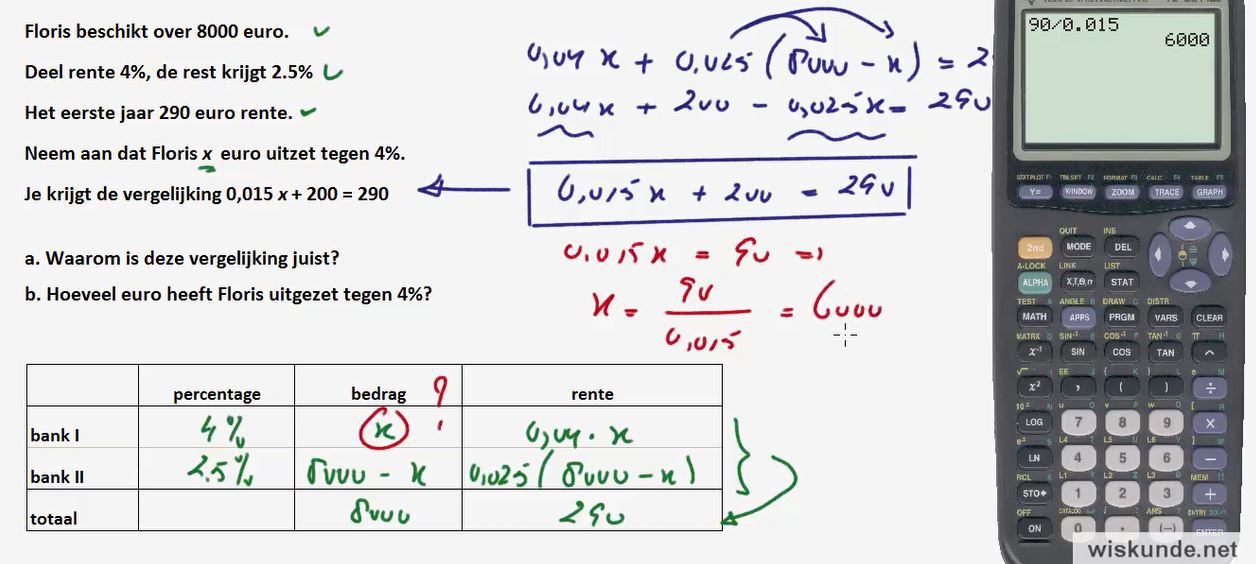 Floris beschikt over 8000 euro.
Deel rente 4%, de rest krijgt 2.5%
Het eerste jaar 290 euro rente.
Neem aan dat Floris x euro uitzet tegen 4%.
Je krijgt de vergelijking 0,015 x + 200 = 290
a. Waarom is deze vergelijking juist?
b. Hoeveel euro heeft Floris uitgezet tegen 4%?
0,04 x + 0,025 (8000 - x) = 2
0,04x + 200 - 0,025x = 290
0,015x + 200 = 290
0,015x = 90 =>
x = 90 / 0,015 = 6000
percentage bedrag ? rente
bank I 4% x 0,04 · x
bank II 2.5% 8000 - x 0,025 (8000 - x)
totaal 8000 290
90/0.015
6000
STAT PLOT F1 TBLSET F2 FORMAT F3 CALC F4 TABLE F5
Y= WINDOW ZOOM TRACE GRAPH
QUIT INS
2nd MODE DEL
A-LOCK LINK LIST
ALPHA X,T,θ,n STAT
TEST A ANGLE B DRAW C DISTR
MATH APPS PRGM VARS CLEAR
MATRX D SIN⁻¹ E COS⁻¹ F TAN⁻¹ G π H
x⁻¹ SIN COS TAN ^
√ I EE J { K } L e M
x² , ( ) ÷
10ˣ N u O v P w Q [ R
LOG 7 8 9 ×
eˣ S L4 T L5 U L6 V ] W
LN 4 5 6 −
RCL X L1 Y L2 Z L3 θ MEM "
STO▸ 1 2 3 +
OFF CATALOG i : ANS ? ENTRY SOLVE
ON 0 . (−) ENTER
wiskunde.net